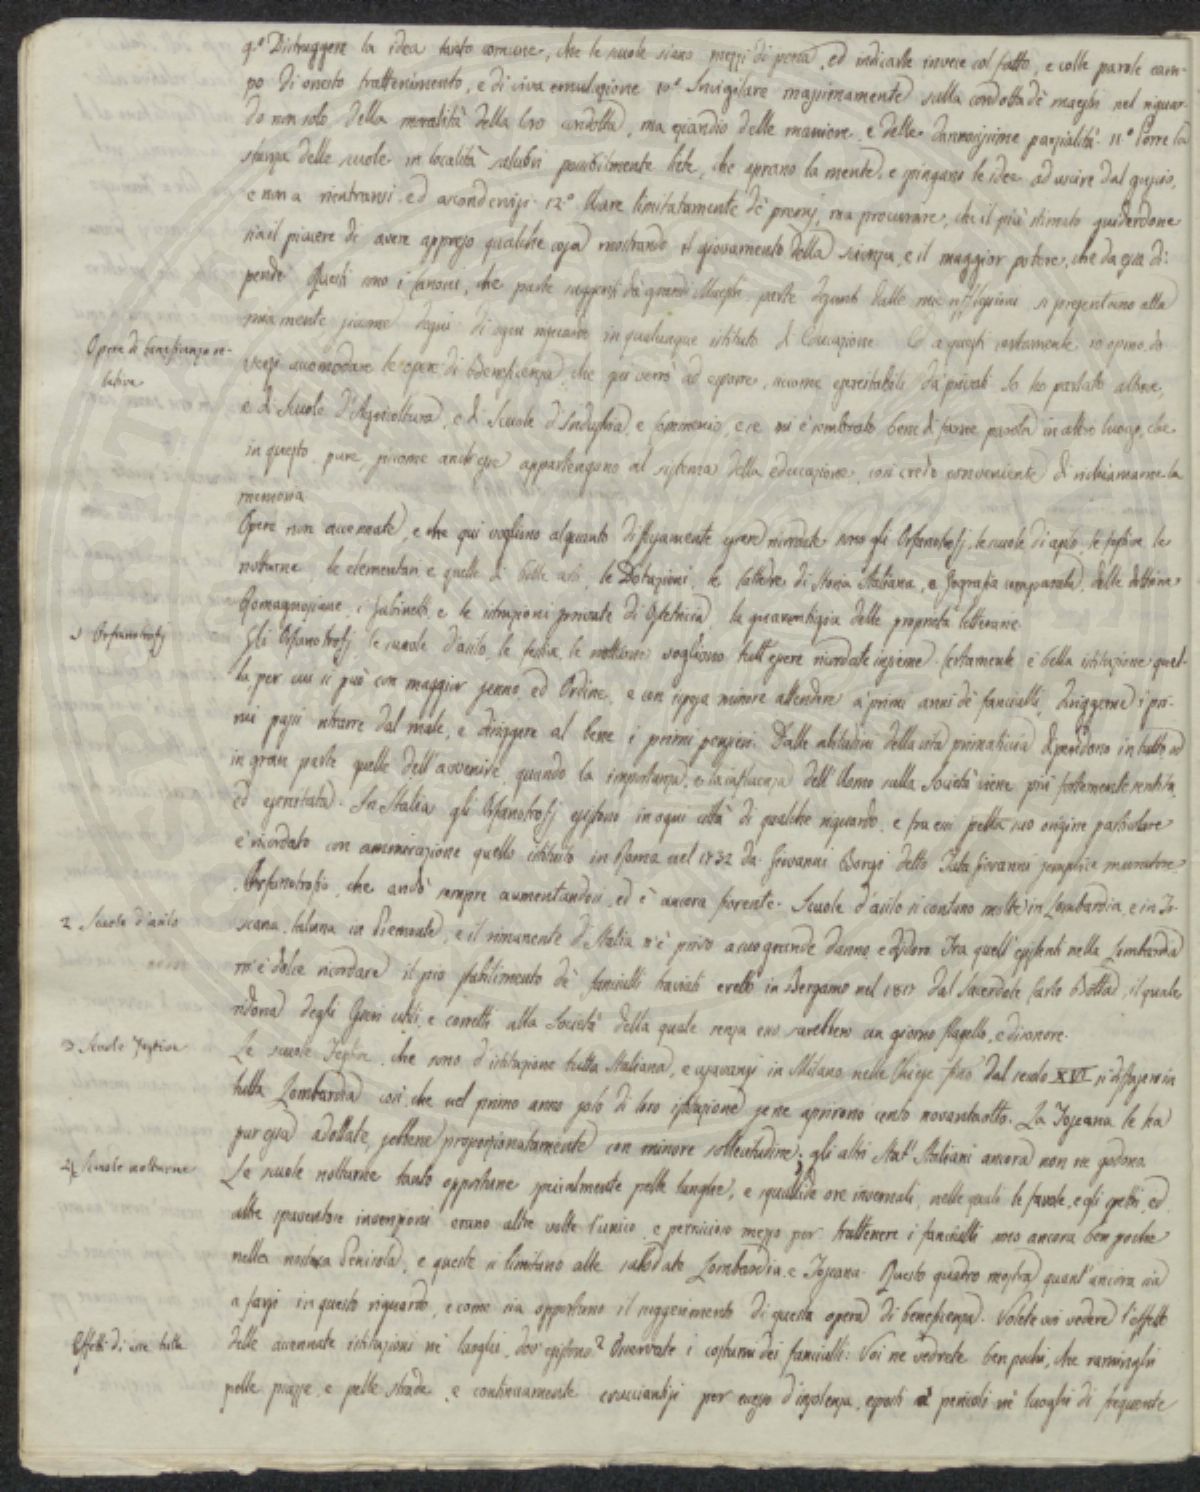 9.º Distruggere la idea tanto comune, che le scuole siano mezzi di pena, ed indicarle invece col fatto, e colle parole cam-
po di onesto trattenimento, e di viva emulazione 10.º Invigilare massimamente sulla condotta de' maestri nel riguar-
do non solo della moralità della loro condotta, ma eziandio delle maniere, e delle dannosissime parzialità. 11.º Porre la
stanza delle scuole in località salubri possibilmente liete, che aprano la mente, e spingano le idee ad uscire dal guscio,
e non a rientrarvi ed ascondervisi. 12.º Usare limitatamente de' premj, ma procurare, che il più stimato guiderdone
sia il piacere di avere appreso qualche cosa mostrando il giovamento della scienza, e il maggior potere, che da essa di-
pende. Questi sono i canoni, che parte suggeriti da grandi Maestri, parte desunti dalle mie riflessioni si presentano alla
mia mente siccome degni di ogni riguardo in qualunque istituto di Educazione. E a questi certamente io opino do-
versi accomodare le opere di Beneficenza, che qui verrò ad esporre, siccome esercitabili da privati. Io ho parlato altrove,
Opere di beneficenza re-
lativa
e di Scuole d'Agricoltura, e di Scuole d'Industria, e Commercio, e se mi è sembrato bene di farne parola in altro luogo, che
in questo, pure, siccome anch'esse appartengono al sistema della educazione, così credo conveniente di richiamarne la
memoria.
Opere non accennate, e che qui vogliono alquanto diffusamente essere ricordate sono gli Orfanotrofj, le scuole di asilo, le festive le
notturne, le elementari e quelle di belle arti, le Dotazioni, le Cattedre di Storia Italiana, e Geografia comparata, delle dottrine
Romagnosiane, i Gabinetti, e le istruzioni private di Ostetricia, la guarentigia delle proprietà letterarie.
1 Orfanotrofj
Gli Orfanotrofj le scuole d'asilo, le festive, le notturne vogliono tutt'essere ricordate insieme. Certamente è bella istituzione quel-
la, per cui si può con maggior senno, ed Ordine, e con spesa minore attendere a' primi anni de' fanciulli, dirigerne i pri-
mi passi ritrarre dal male, e dirigere al bene i primi pensieri. Dalle abitudini della vita primaticcia dipendono in tutto, od
in gran parte quelle dell'avvenire, quando la importanza, e la influenza dell'Uomo sulla Società viene più fortemente sentita,
ed esercitata. In Italia gli Orfanotrofj esistono in ogni città di qualche riguardo, e fra essi pella sua origine particolare
è ricordato con ammirazione quello istituito in Roma nel 1732 da Giovanni Borgi detto Tata Giovanni semplice muratore.
Orfanotrofio, che andò sempre aumentandosi, ed è ancora fiorente. Scuole d'asilo si contano molte in Lombardia, e in To-
2 Scuole d'asilo
scana, taluna in Piemonte, e il rimanente d'Italia n'è privo a suo grande danno, e disdoro. Tra quell'esistenti nella Lombardia
m'è dolce ricordare il pio stabilimento de' fanciulli traviati eretto in Bergamo nel 1817 dal Sacerdote Carlo Botta, il quale
ridona degli Esseri utili, e corretti alla Società della quale senza esso sarebbero un giorno flagello, e disonore.
3 Scuole Festive
Le scuole Festive, che sono d'istituzione tutta Italiana, e usavansi in Milano nelle Chiese fino dal secolo XVI si diffusero in
tutta Lombardia così, che nel primo anno solo di loro istituzione se ne aprirono cento novantaotto. La Toscana le ha
pur essa adottate, sebbene proporzionatamente con minore sollecitudine; gli altri Stati Italiani ancora non ne godono.
4 Scuole notturne
Le scuole notturne tanto opportune specialmente pelle lunghe, e squallide ore invernali, nelle quali le favole, e gli spettri, ed
altre spaventose invenzioni erano altre volte l'unico, e pernicioso mezzo per trattenere i fanciulli sono ancora ben poche
nella nostra Penisola, e queste si limitano alle sullodate Lombardia, e Toscana. Questo quadro mostra quant'ancora sia
a farsi in questo riguardo, e come sia opportuno il suggerimento di questa opera di beneficenza. Volete voi vedere l'effetto
Effetti di esse tutte
delle accennate istituzioni ne' luoghi, dov'esistono? Osservate i costumi dei fanciulli: Voi ne vedrete ben pochi, che raminghi
pelle piazze, e pelle strade, e continuamente crucciantisi per eccesso d'insolenza, esposti a' pericoli ne' luoghi di frequente